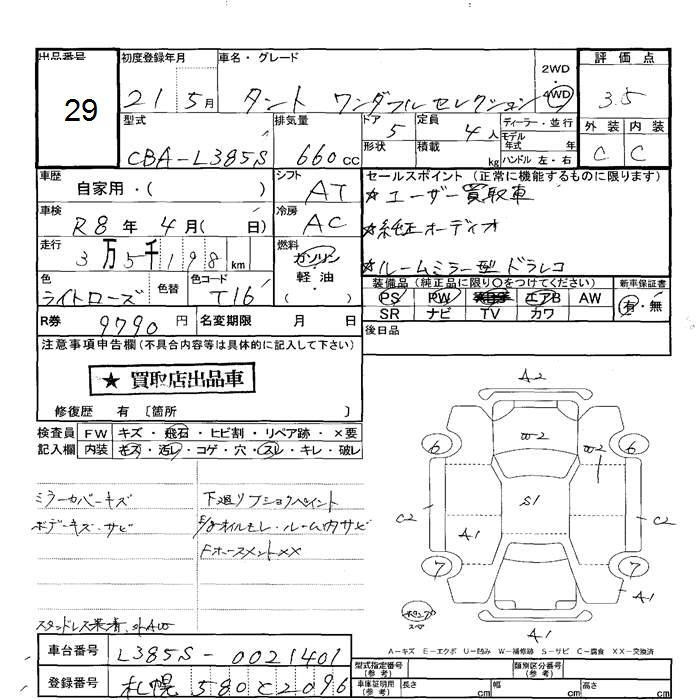 出品番号 初度登録年月 車名・グレード 2WD・4WD 評価点
29 21 5月 タント ワンダフルセレクション 3.5
型式 排気量 ドア 定員 ディーラー・並行 外装 内装
CBA-L385S 660cc 5 4人 モデル年式 年 C C
形状 積載 kg ハンドル 左・右
車歴 自家用・( ) シフト AT セールスポイント (正常に機能するものに限ります)
★ユーザー買取車
車検 R8年 4月( 日) 冷房 AC ★純正オーディオ
走行 3万5千198km 燃料 ガソリン・軽油・( ) ★ルームミラー型ドラレコ
色 ライトローズ 色替 色コード T16 装備品 (純正品に限り○をつけてください) 新車保証書
PS PW エアB AW 有・無
SR ナビ TV カワ
R券 9790円 名変期限 月 日 後日品
注意事項申告欄 (不具合内容等は具体的に記入して下さい)
★ 買取店出品車
修復歴 有 [箇所 ]
検査員記入欄 FW キズ・飛石・ヒビ割・リペア跡・×要
内装 キズ・汚レ・コゲ・穴・スレ・キレ・破レ
ミラーカバーキズ 下廻りフショクペイント
ボデーキズ・サビ E/Gオイルモレ・ルーム内サビ
Fホースメント××
A2
W2 W2
6 6
S1
C2 C2
A1
7 7
A1
A1
スペア
A-キズ E-エクボ U-凹み W-補修跡 S-サビ C-腐食 XX-交換済
車台番号 L385S-0021401 型式指定番号 (参考) 類別区分番号 (参考)
登録番号 札幌 580 と 2096 車庫証明 (参考) 長さ cm 幅 cm 高さ cm